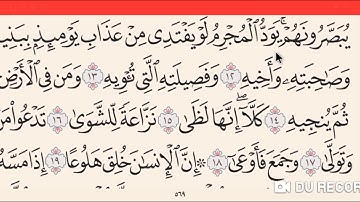 يُبَصَّرُونَهُمْ ۚ يَوَدُّ ٱلْمُجْرِمُ لَوْ يَفْتَدِى مِنْ عَذَابِ يَوْمِئِذٍۭ بِبَنِيهِ
وَصَـٰحِبَتِهِۦ وَأَخِيهِ ١٢ وَفَصِيلَتِهِ ٱلَّتِى تُـْٔوِيهِ ١٣ وَمَن فِى ٱلْأَرْضِ
ثُمَّ يُنجِيهِ ١٤ كَلَّآ ۖ إِنَّهَا لَظَىٰ ١٥ نَزَّاعَةً لِّلشَّوَىٰ ١٦ تَدْعُوا۟ مَنْ
وَتَوَلَّىٰ ١٧ وَجَمَعَ فَأَوْعَىٰٓ ١٨ ۞ إِنَّ ٱلْإِنسَـٰنَ خُلِقَ هَلُوعًا ١٩ إِذَا مَسَّهُ
٥٦٩
DU RECOR